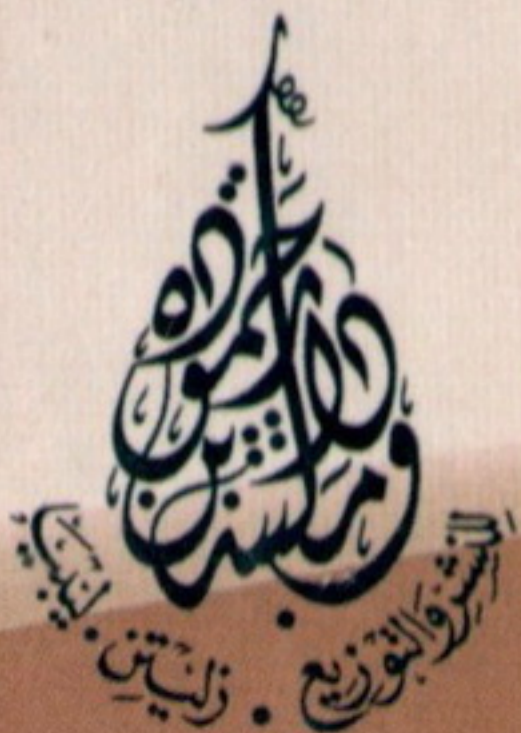 دار ومكتبة بن حمودة
للنشر والتوزيع . زليتن . ليبيا